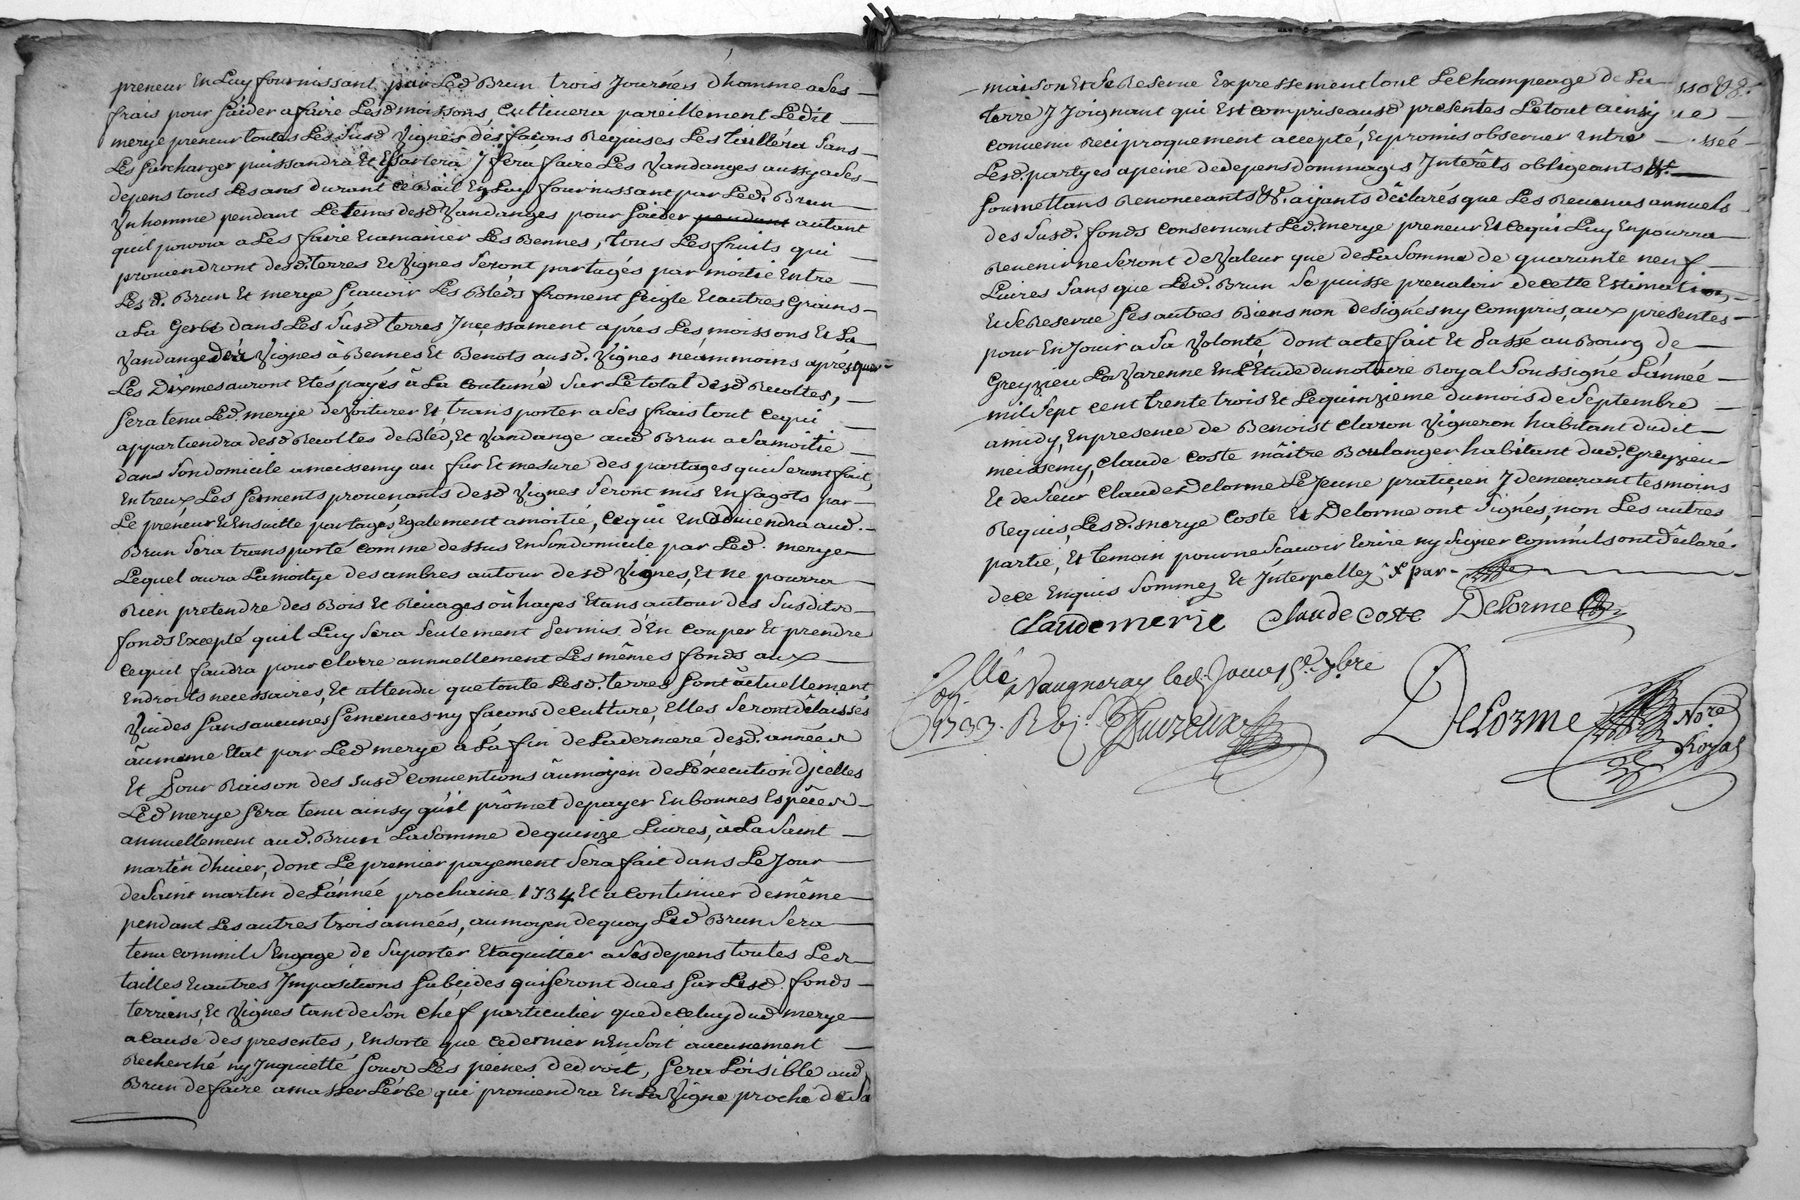 preneur En Luy fournissant par Led Brun trois Journées d'homme a Ses
frais pour l'aider a faire Lesd moissons, Cultivera pareillement Ledit
merye preneur toutes Les Susd Vignes des façons Requises Les taillera Sans
Les Surcharger puissandra Et Essartera J fera faire Les Vandanges aussy a Ses
depens tous Les ans durant ce Bail En Luy fournissant par Led. Brun
Un homme pendant Le tems desd Vandanges pour l'aider pendant autant
quil pourra a Les faire Et amanier Les Bennes, Tous Les fruits qui
proviendront desd. terres Et Vignes Seront partagés par moitié Entre
Lesd. Brun Et merye Scavoir Les Bléds froment Seigle Et autres Grains
a La Gerbe dans Les Susd terres Incessament aprés Les moissons Et La
Vandange des Vignes à Bennes Et Benots ausd. Vignes néammoins aprés que
Les Dixmes auront Etés payés à La coutume Sur Le total desd Recoltes,
Sera tenu Led. merye de Voiturer Et transporter a Ses frais tout ce qui
appartiendra desd Recoltes de Bléd, Et Vandange aud Brun a Sa moitie
dans Son domicile a meissemy au fur Et mesure des partages qui Seront fait,
Entreux Les Serments provenants desd Vignes Seront mis En fagots par
Le preneur Et Ensuitte partagés Egalement a moitié, ce qui En aduiendra aud.
Brun Sera transporté comme dessus En Son domicile par Led. merye
Lequel aura La moitye des ambres autour desd Vignes, Et ne pourra
Rien pretendre des Bois Et Rivages où hayes Etans autour des Susdits
fonds Excepté quil Luy Sera Seulement Permis d'En couper Et prendre
ce quil faudra pour clorre annuellement Les mêmes fonds aux
Endroits necessaires, Et attendu que toute Lesd. terres Sont actuellement
Vuides Sans aucunes Semences ny façons de culture, Elles Seront délaissés
au meme Etat par Led merye à La fin de La derniere desd. années
Et Pour Raison des Susd conventions au moyen de L'éxecution d'jcelles
Led merye Sera tenu ainsy qu'il promet de payer En bonnes Espéces
annuellement aud. Brun La Somme de quinze Livres, à La Saint
martin d'hiver, dont Le premier payement Sera fait dans Le Jour
de Saint martin de L'année prochaine 1734 Et a continuer de même
pendant Les autres trois années, au moyen de quoy Led Brun Sera
tenu comm'il S'Engage de Suporter Et aquitter a Ses depens toutes Les
tailles Et autres Impositions Subcides qui Seront dues Sur Lesd. fonds
terriens, Et Vignes tant de Son chef particulier que de celuy dud merye
a cause des presentes, Ensorte que ce dernier n'En Soit aucunement
Recherché ny Inquietté Sous Les peines de droit, Sera Loisible aud
Brun de faire amasser L'érbe qui proviendra En La Vigne proche de Sa
maison Et Se Reserve Expressement tout Le Champeage de La
terre y Joignant qui Est comprise ausd presentes Le tout ainsy
convenu Reciproquement accepté, Et promis observer Entre
Lesd. partyes a peine de depens dommages Interêts obligeants &c.
Soumettans Renonceants &c. ajants déclarés que Les Revenus annuels
des Susd. fonds consernant Led. merye preneur Et ce qui Luy En pourra
Revenir ne Seront de Valeur que de La Somme de quarante neuf
Livres Sans que Led. Brun Se puisse prevaloir de cette Estimation,
Et Se Reserve Ses autres Biens non designés ny compris, aux presentes
pour En Jouir a Sa Volonté, dont acte fait Et Passé au Bourg de
Greyzieu La Varenne En L'Etude du notaire Royal Soussigné L'année
mil Sept cent trente trois Et Le quinzieme du mois de Septembre
a midy, En presence de Benoist claron Vigneron habitant dudit
meissemy, Claude Coste maître Boulanger habitant dud. Greyzieu
Et de Sieur Claude Delorme Le Jeune praticien y demeurant tesmoins
Requis, Lesd. merye Coste Et Delorme ont Signés, non Les autres
partie, Et temoin pour ne Scavoir Ecrire ny Signer comm'ils ont déclaré
de ce Enquis Sommez Et Interpellez par
Claude merie Claude Coste Delorme
Collé a Vaugneray le d. Jour 15e 7bre
1733. R
Delorme Nore
Royal